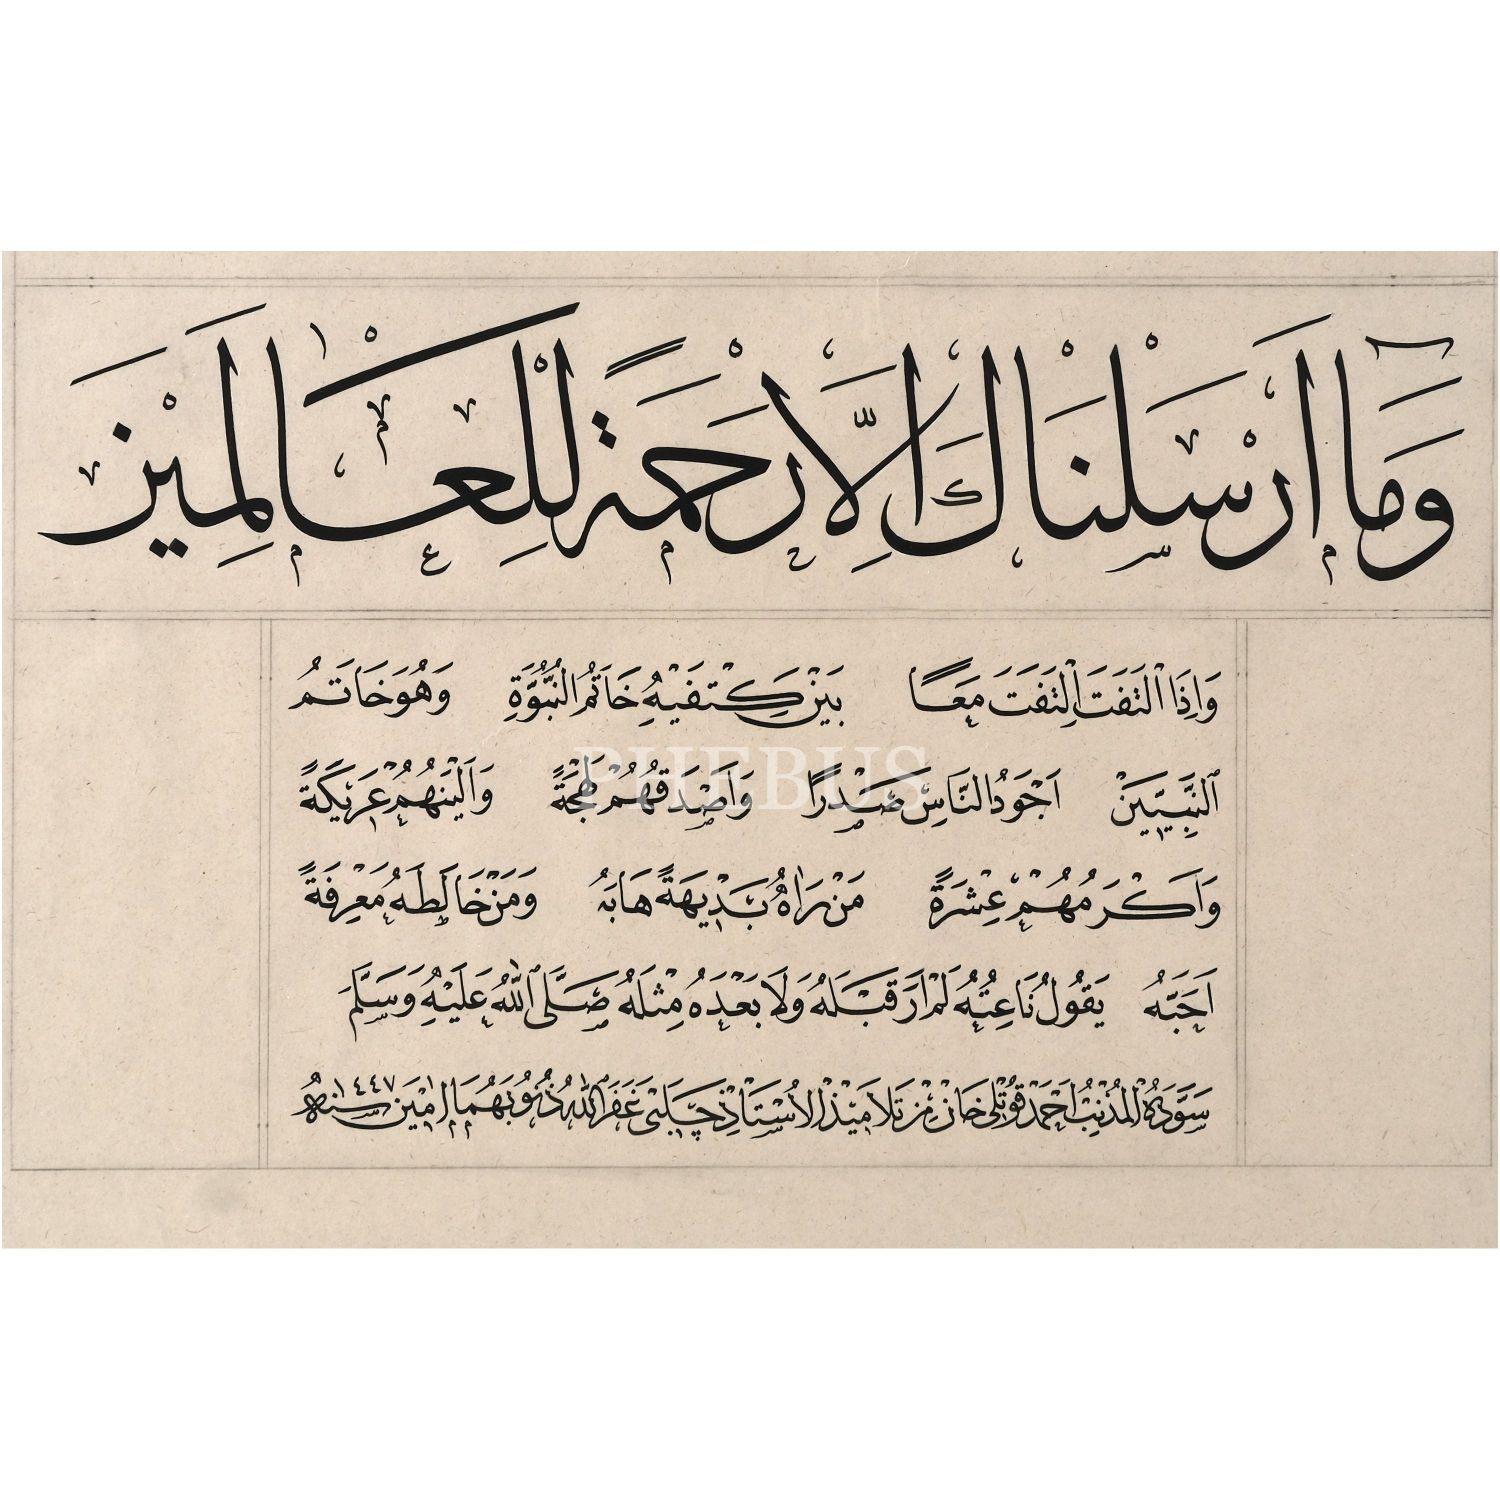 وَمَٓا اَرْسَلْنَاكَ اِلَّا رَحْمَةً لِلْعَالَمِينَ
وَاِذَا الْتَفَتَ اِلْتَفَتَ مَعًا بَيْنَ كَتْفَيْهِ خَاتَمُ النُّبُوَّةِ وَهُوَ خَاتَمُ
النَّبِيّٖينَ اَجْوَدُ النَّاسِ صَدْرًا وَاَصْدَقُهُمْ لَهْجَةً وَاَلْيَنُهُمْ عَرٖيكَةً
وَاَكْرَمُهُمْ عِشْرَةً مَنْ رَاٰهُ بَدٖيهَةً هَابَهُ وَمَنْ خَالَطَهُ مَعْرِفَةً
اَحَبَّهُ يَقُولُ نَاعِتُهُ لَمْ اَرَ قَبْلَهُ وَلَا بَعْدَهُ مِثْلَهُ صَلَّى اللّٰهُ عَلَيْهِ وَسَلَّمَ
سَوَّدَهُ الْمُذْنِبُ اَحْمَدْ قُوتْلِى خَانْ مِنْ تَلَامٖيذِ الْاُسْتَاذْ چَلَبٖى غَفَرَ اللّٰهُ ذُنُوبَهُمَا اٰمٖينَ سنه ١٤٤٧
PHEBUS